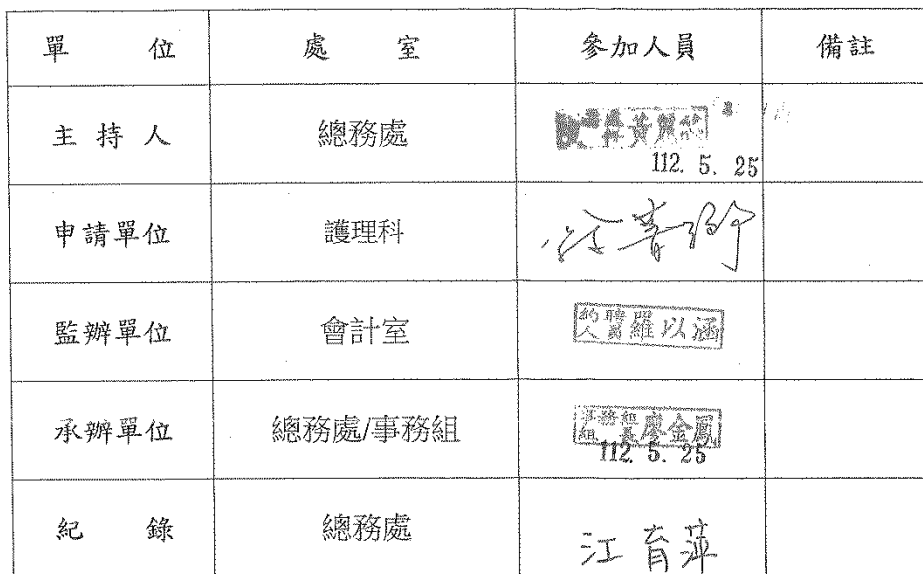 單 位 處 室 參加人員 備註
主 持 人 總務處 黃麗
112. 5. 25
申請單位 護理科
監辦單位 會計室 約聘人員 羅以涵
承辦單位 總務處/事務組 事務組組長 廖金鳳
112. 5. 25
紀 錄 總務處 江育萍